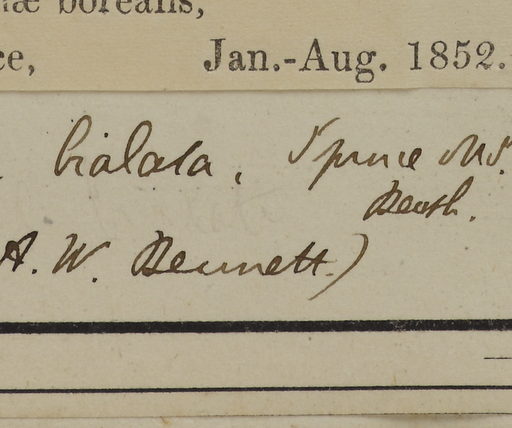 næ borealis,
ce, Jan.-Aug. 1852.
bialata, Spruce Ms.
Benth.
A. W. Bennett.)